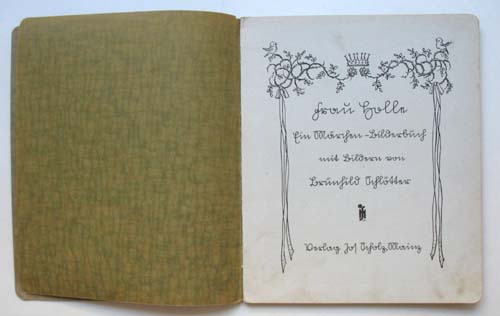 Frau Holle
Ein Märchen-Bilderbuch
mit Bildern von
Brünhild Schlötter
Verlag Jos Scholz, Mainz